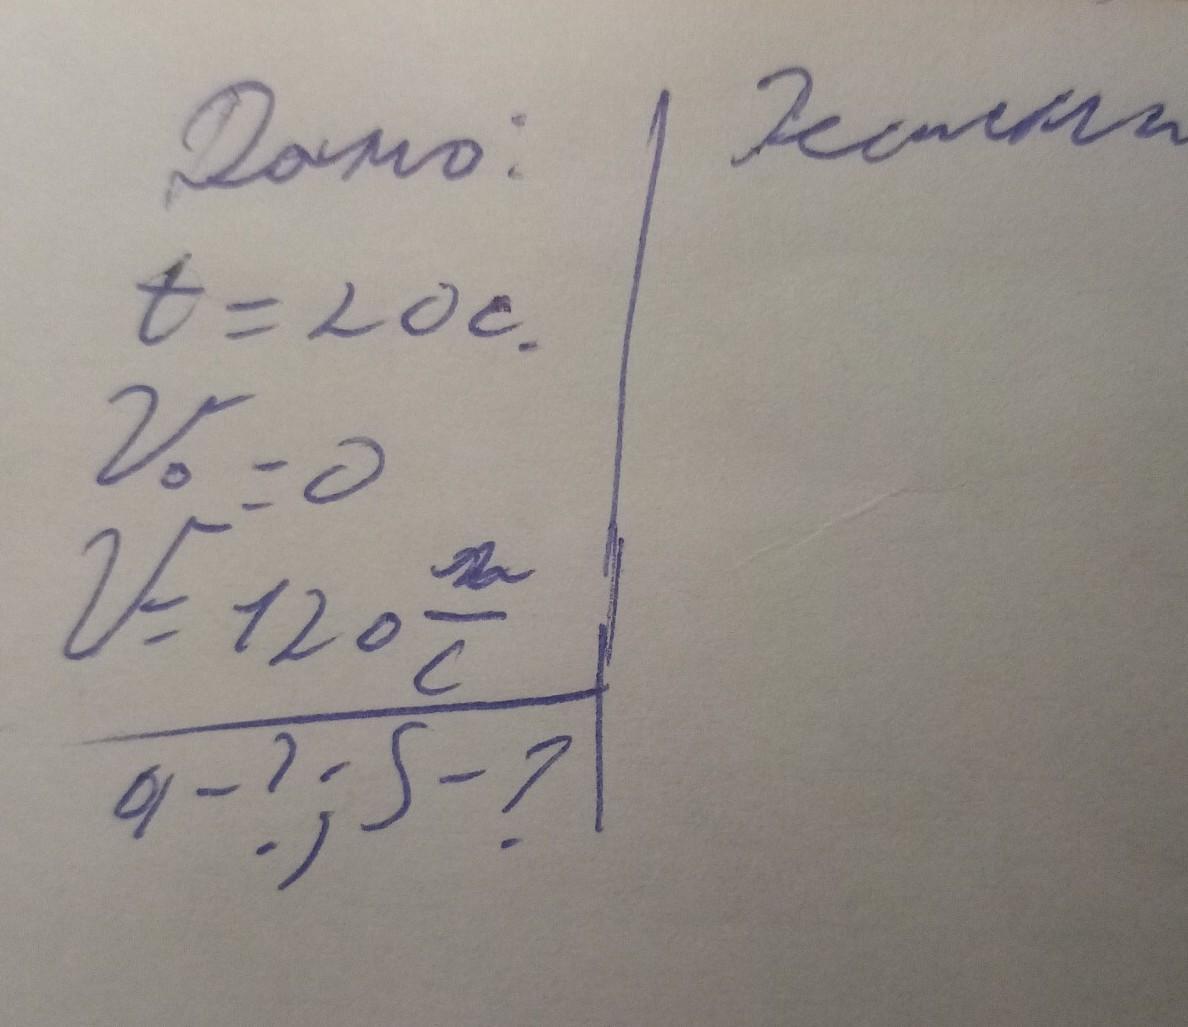 Дано:
t = 20 с.
V₀ = 0
V = 120 м/с
a - ?; S - ?
Решение